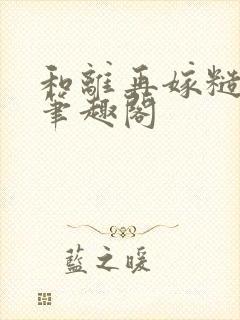 和離再嫁糙
筆趣閣
藍之暖